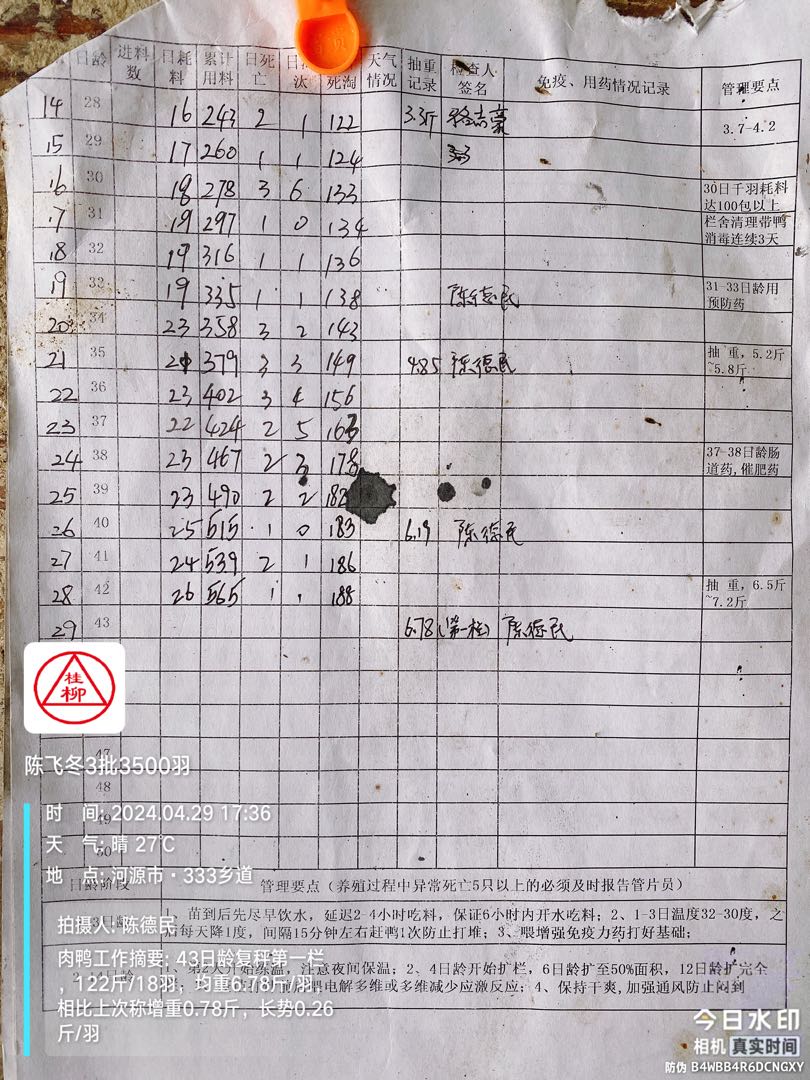 日龄 进料数 日耗料 累计用料 日死亡 死淘 天气情况 抽重记录 检查人签名 免疫、用药情况记录 管理要点
14 28 16 243 2 1 122 3.3斤 3.7-4.2
15 29 17 260 1 1 124
16 30 18 278 3 6 133 30日千羽耗料达100包以上
17 31 19 297 1 0 134 栏舍清理带鸭消毒连续3天
18 32 19 316 1 1 136
19 33 19 335 1 1 138 陈德民 31-33日龄用预防药
20 34 23 358 3 2 143
21 35 21 379 3 3 149 4.85 陈德民 抽重,5.2斤~5.8斤
22 36 23 402 3 4 156
23 37 22 424 2 5 163
24 38 23 467 2 3 178 37-38日龄肠道药,催肥药
25 39 23 490 2 2 182
26 40 25 515 1 0 183 6.19 陈德民
27 41 24 539 2 1 186
28 42 26 565 1 1 188 抽重,6.5斤~7.2斤
29 43 6.78(第一栏) 陈德民
桂柳
47
陈飞冬3批3500羽
48
时 间: 2024.04.29 17:36
49
天 气: 晴 27℃
50
地 点: 河源市·333乡道
日龄阶段 管理要点(养殖过程中异常死亡5只以上的必须及时报告管片员)
拍摄人: 陈德民
3日龄 1、苗到后先尽早饮水,延迟2-4小时吃料,保证6小时内开水吃料;2、1-3日温度32-30度,之
后每天降1度,间隔15分钟左右赶鸭1次防止打堆;3、喂增强免疫力药打好基础;
肉鸭工作摘要: 43日龄复秤第一栏,122斤/18羽,均重6.78斤/羽,相比上次称增重0.78斤,长势0.26斤/羽
日龄 1、第2天开始练温,注意夜间保温;2、4日龄开始扩栏,6日龄扩至50%面积,12日龄扩完全
电解多维或多维减少应激反应;4、保持干爽,加强通风防止闷到
今日水印
相机 真实时间
防伪 B4WBB4R6DCNGXY